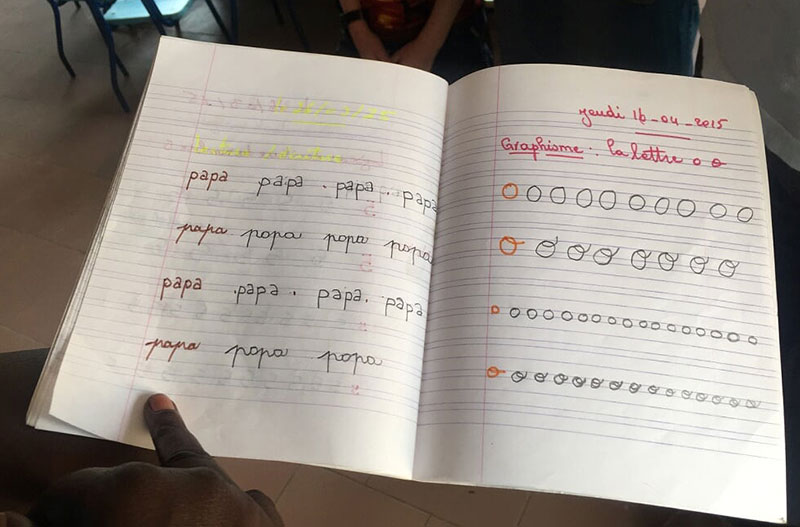 papa papa . papa . papa
papa popa popa popa
papa .papa . papa. papa
papa popa popa
Jeudi 16-04-2015
Graphisme : la lettre o o
o o o o o o o o o o
o o o o o o o o o
o o o o o o o o o o o o o o o o
o o o o o o o o o o o o o o o